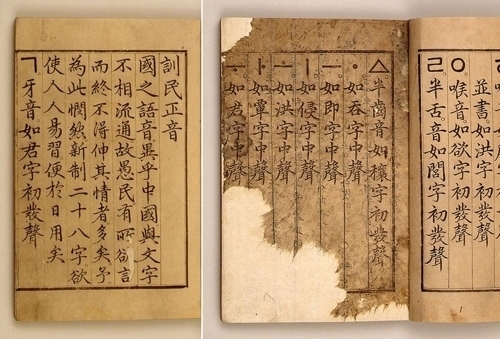 訓民正音
國之語音異乎中國與文字
不相流通故愚民有所欲言
而終不得伸其情者多矣予
為此憫然新制二十八字欲
使人人易習便於日用矣
ㄱ牙音如君字初發聲
並書如洪字初發聲
ㅇ喉音如欲字初發聲
ㄹ半舌音如閭字初發聲
ㅿ半齒音如穰字初發聲
ㆍ如吞字中聲
ㅡ如即字中聲
ㅣ如侵字中聲
ㅗ如洪字中聲
ㅏ如覃字中聲
如君字中聲